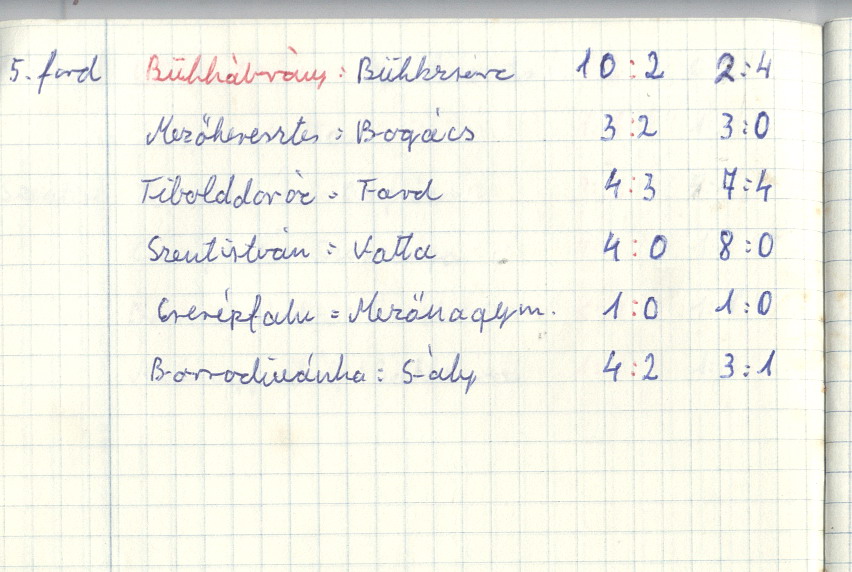 5. ford Bükkábrány : Bükkzsérc 10:2 2:4
Mezőkeresztes : Bogács 3:2 3:0
Tibolddaróc : Tard 4:3 7:4
Szentistván : Vatta 4:0 8:0
Cserépfalu : Mezőnagym. 1:0 1:0
Borsodivánka : Sály 4:2 3:1